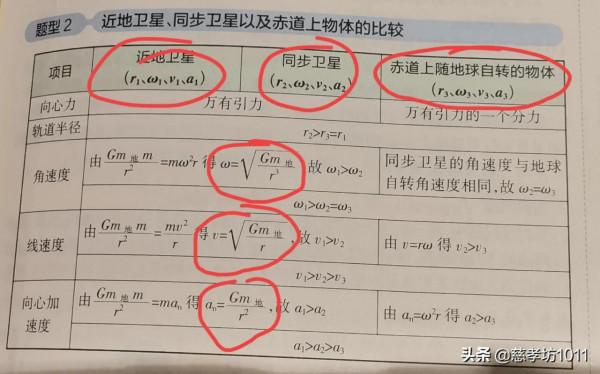 题型2 近地卫星、同步卫星以及赤道上物体的比较
项目
近地卫星
(r₁、ω₁、v₁、a₁)
同步卫星
(r₂、ω₂、v₂、a₂)
赤道上随地球自转的物体
(r₃、ω₃、v₃、a₃)
向心力
万有引力
万有引力的一个分力
轨道半径
r₂>r₃=r₁
角速度
由Gm地m/r²=mω²r得ω=√(Gm地/r³),故ω₁>ω₂
同步卫星的角速度与地球
自转角速度相同,故ω₂=ω₃
ω₁>ω₂=ω₃
线速度
由Gm地m/r²=mv²/r得v=√(Gm地/r),故v₁>v₂
由v=rω得v₂>v₃
v₁>v₂>v₃
向心加
速度
由Gm地m/r²=maₙ得aₙ=Gm地/r²,故a₁>a₂
由aₙ=ω²r得a₂>a₃
a₁>a₂>a₃
头条 @慈孝坊1011